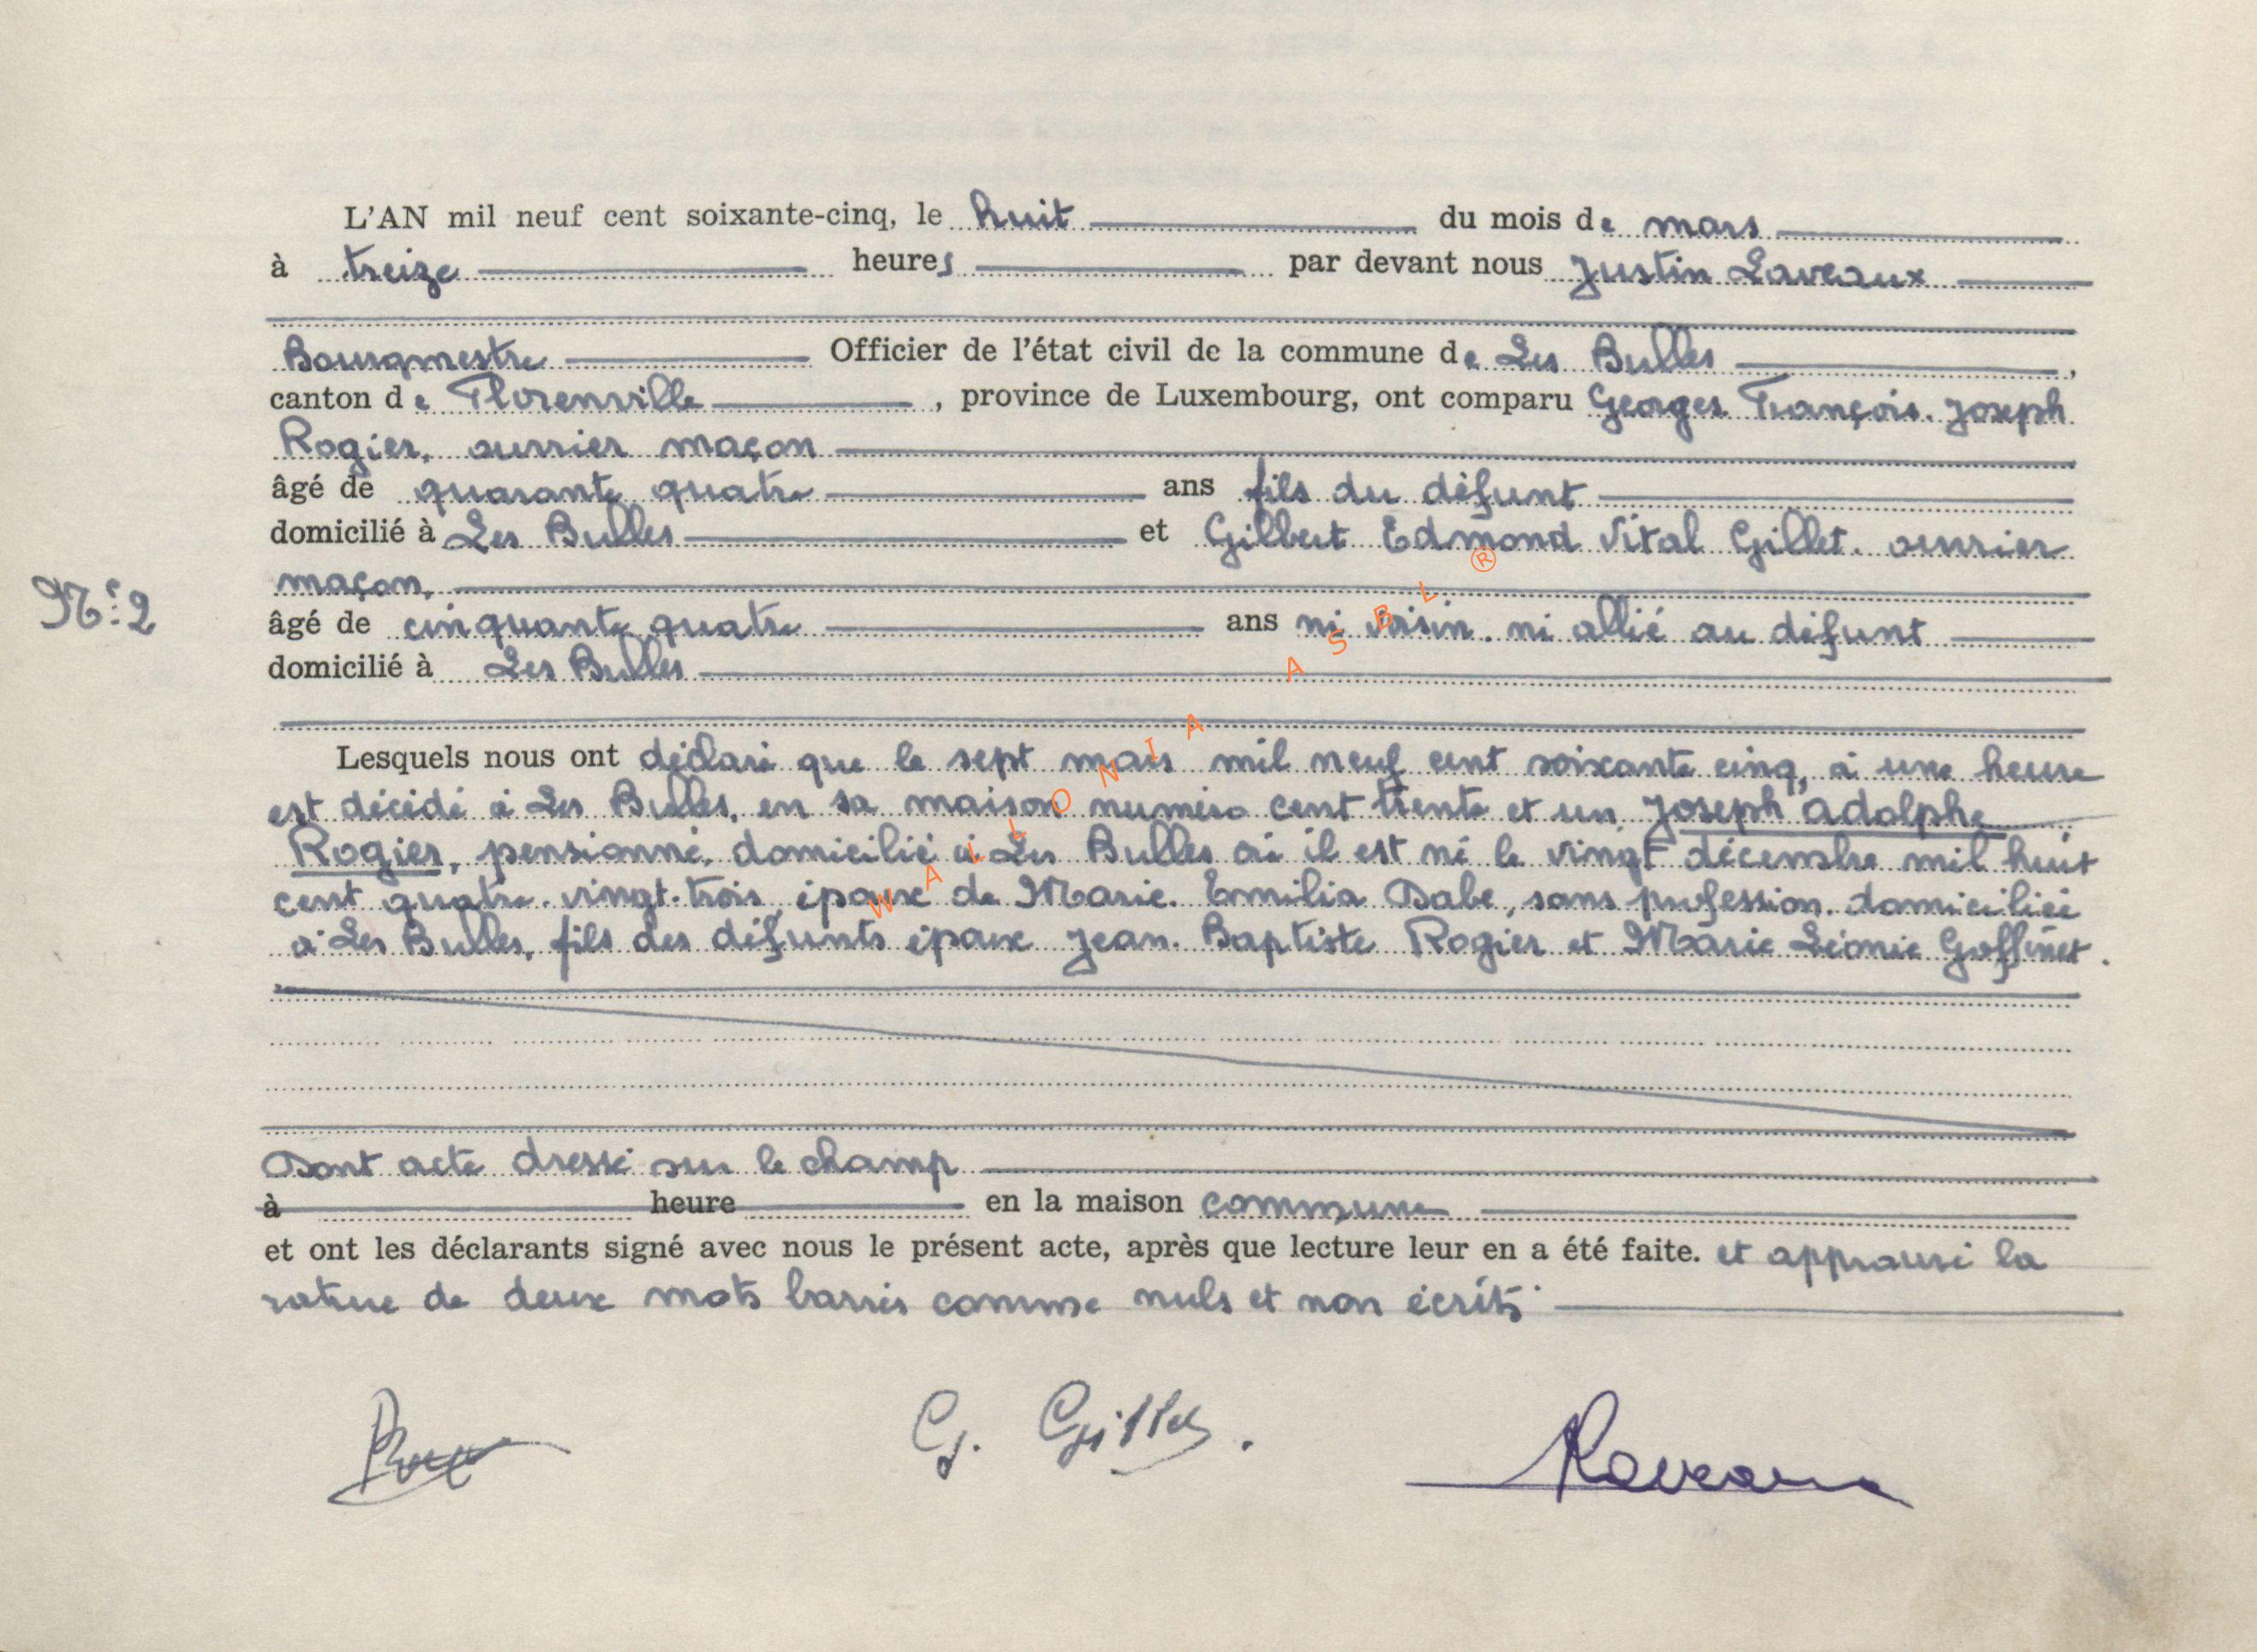 L'AN mil neuf cent soixante-cinq, le huit du mois de mars
à treize heures par devant nous Justin Laveaux
Bourgmestre Officier de l'état civil de la commune de Les Bulles,
canton de Florenville, province de Luxembourg, ont comparu Georges François. Joseph
Rogier, ouvrier maçon
âgé de quarante quatre ans fils du défunt
domicilié à Les Bulles et Gilbert Edmond Vital Gillet. ouvrier
maçon,
N° 2
âgé de cinquante quatre ans ni voisin. ni allié au défunt
domicilié à Les Bulles
Lesquels nous ont déclaré que le sept mars mil neuf cent soixante cinq, à une heure
est décédé à Les Bulles, en sa maison numéro cent trente et un, Joseph Adolphe
Rogier, pensionné, domicilié à Les Bulles où il est né le vingt décembre mil huit
cent quatre. vingt. trois époux de Marie. Emilia Dabe, sans profession. domiciliée
à Les Bulles, fils des défunts époux Jean. Baptiste Rogier et Marie Léonie Goffinet.
Dont acte dressé sur le champ
à heure en la maison commune
et ont les déclarants signé avec nous le présent acte, après que lecture leur en a été faite. et approuvé la
rature de deux mots barrés comme nuls et non écrits.
G. Gillet.
Laveaux
WALLONIA ASBL ®